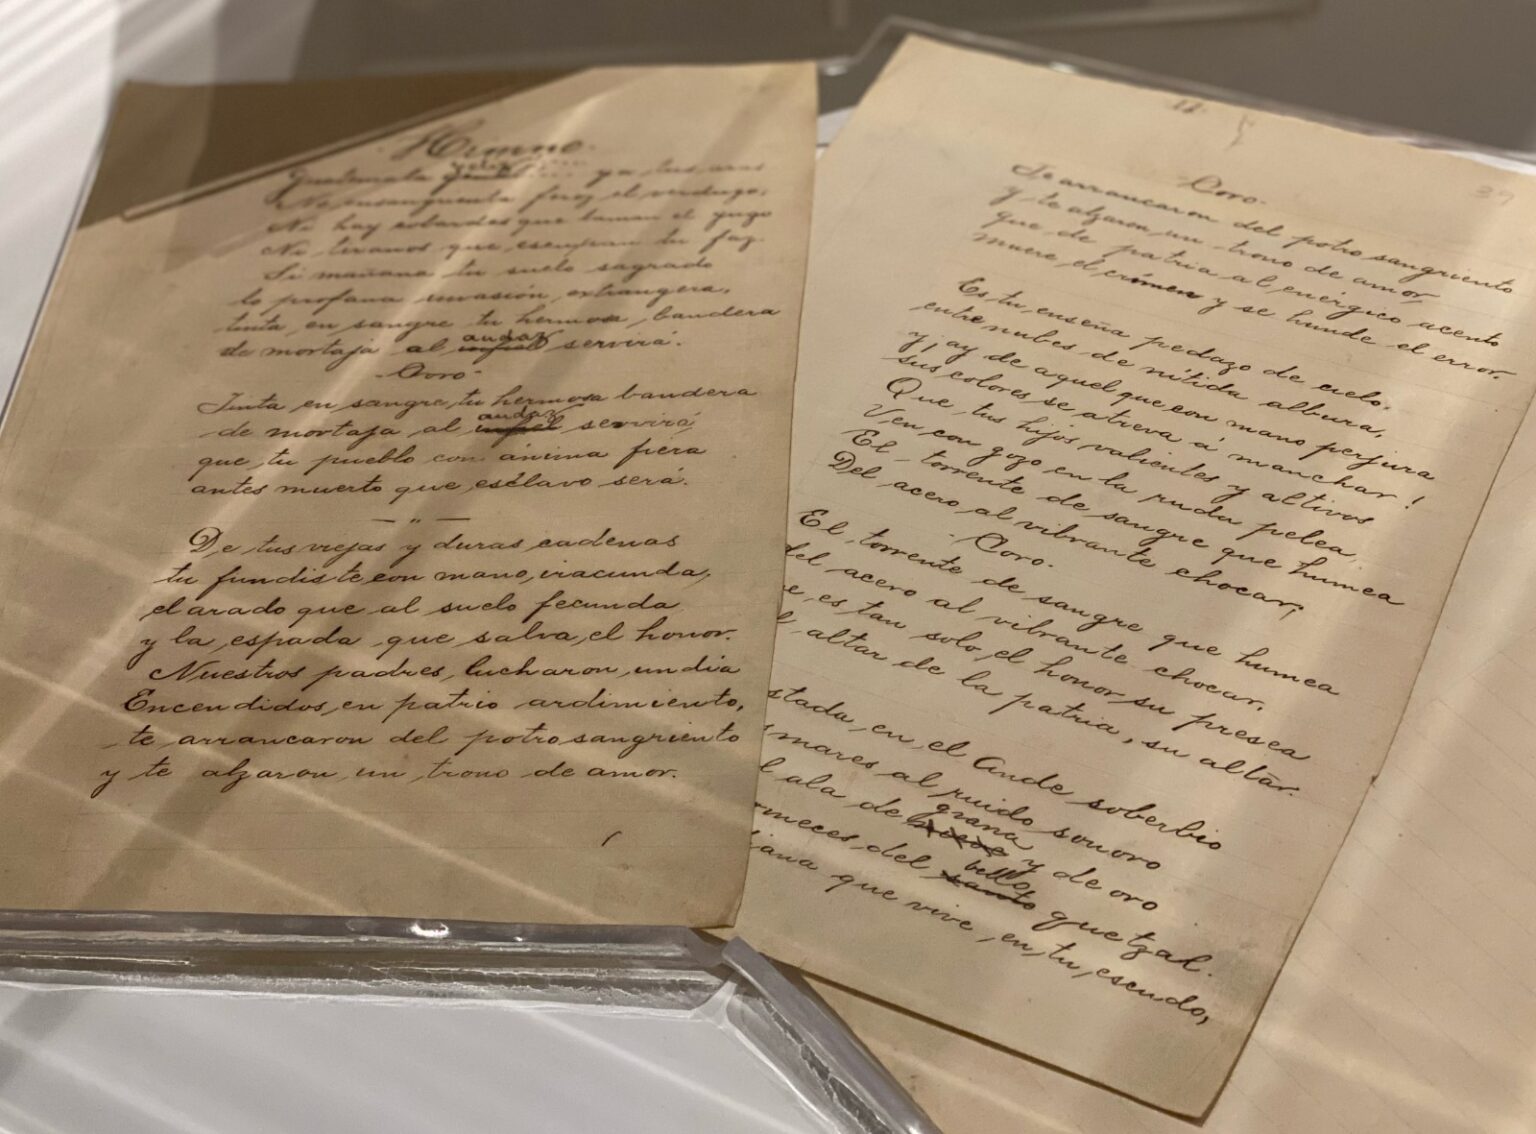 Himno
Guatemala feliz ya tus aras
No ensangrienta feroz el verdugo,
Ni hay cobardes que laman el yugo
Ni tiranos que escupan tu faz.
Si mañana tu suelo sagrado
lo profana invasión extrangera,
tinta en sangre tu hermosa bandera
de mortaja al audaz servirá.
Coro
Tinta en sangre tu hermosa bandera
de mortaja al audaz servirá,
que tu pueblo con ánima fiera
antes muerto que esclavo será.
De tus viejas y duras cadenas
tu fundiste con mano iracunda,
el arado que al suelo fecunda
y la espada que salva el honor.
Nuestros padres lucharon un dia
Encendidos en patrio ardimiento,
te arrancaron del potro sangriento
y te alzaron un trono de amor.
II
37
Coro.
Te arrancaron del potro sangriento
y te alzaron un trono de amor
que de patria al energico acento
muere el crimen y se hunde el error.
Es tu enseña pedazo de cielo,
entre nubes de nítida albura,
y ¡ay de aquel que con mano perjura
sus colores se atreva á manchar!
Que tus hijos valientes y altivos
Ven con gozo en la ruda pelea
El torrente de sangre que humea
Del acero al vibrante chocar;
Coro.
El torrente de sangre que humea
del acero al vibrante chocar,
es tan solo el honor su presea
altar de la patria, su altar.
stada en el Ande soberbio
mares al ruido sonoro
ala de grana y de oro
rmeces del santo bello quetzal.
iana que vive en tu escudo,